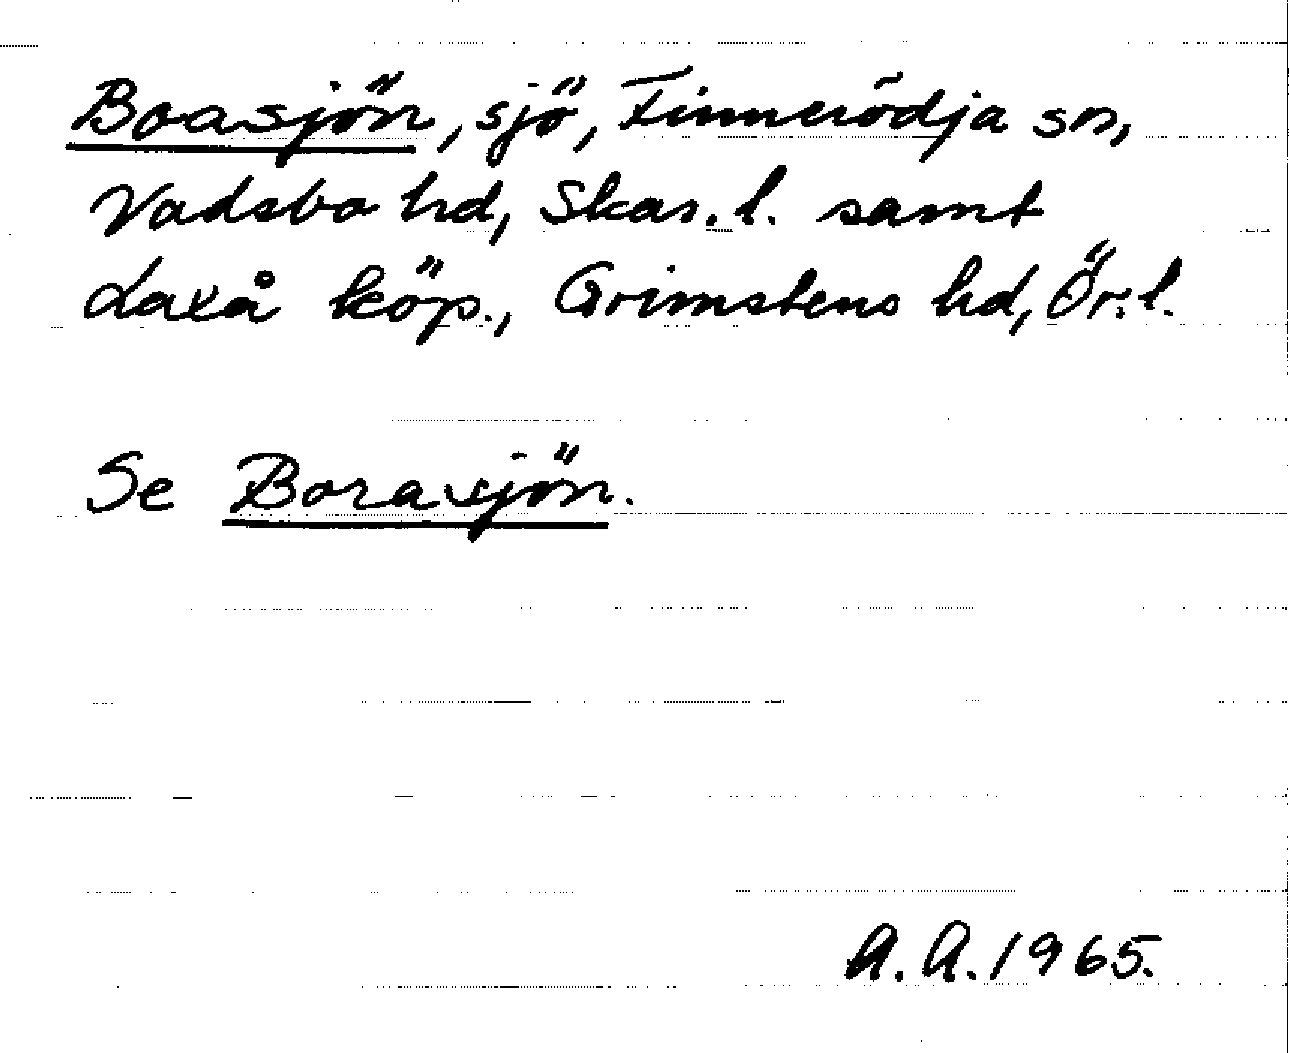 Boasjön, sjö, Finnerödja sn,
Vadsbo hd, Skar. l. samt
Laxå köp., Grimstens hd, Ör. l.
Se Borasjön.
A. A. 1965.